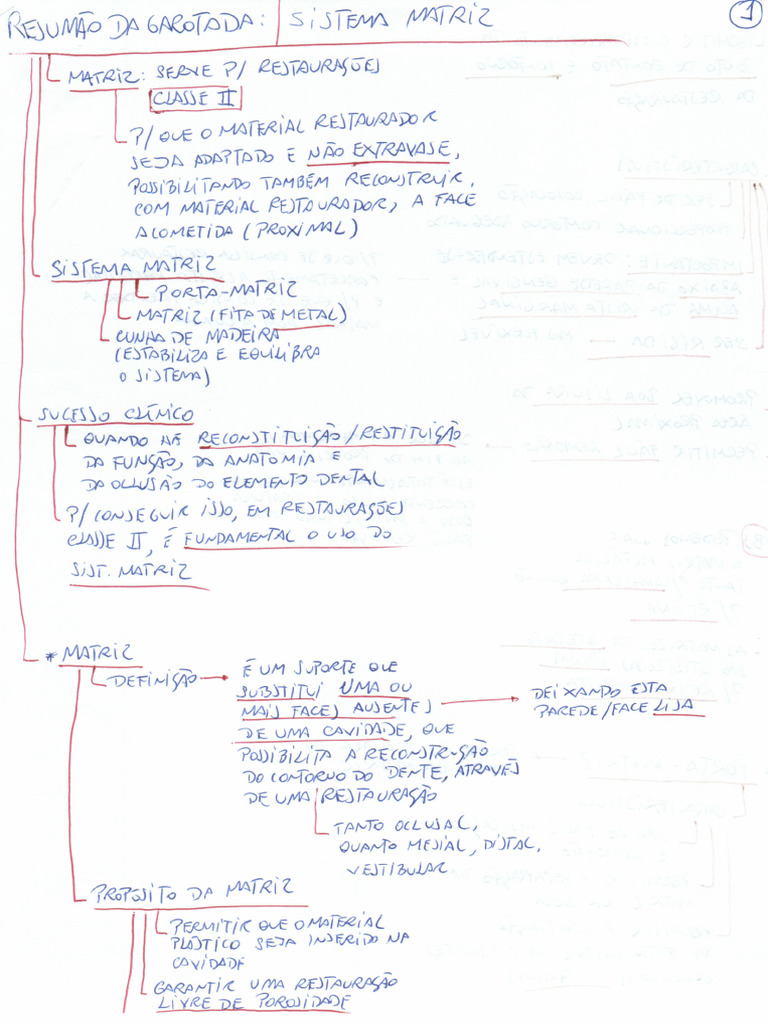 RESUMÃO DA GAROTADA: SISTEMA MATRIZ
1
MATRIZ: SERVE P/ RESTAURAÇÕES
CLASSE II
P/ QUE O MATERIAL RESTAURADOR
SEJA ADAPTADO E NÃO EXTRAVASE,
POSSIBILITANDO TAMBÉM RECONSTRUIR,
COM MATERIAL RESTAURADOR, A FACE
ACOMETIDA (PROXIMAL)
SISTEMA MATRIZ
PORTA-MATRIZ
MATRIZ (FITA DE METAL)
CUNHA DE MADEIRA
(ESTABILIZA E EQUILIBRA
O SISTEMA)
SUCESSO CLÍNICO
QUANDO HÁ RECONSTITUIÇÃO/RESTITUIÇÃO
DA FUNÇÃO, DA ANATOMIA E
DA OCLUSÃO DO ELEMENTO DENTAL
P/ CONSEGUIR ISSO, EM RESTAURAÇÕES
CLASSE II, É FUNDAMENTAL O USO DO
SIST. MATRIZ
* MATRIZ
DEFINIÇÃO → É UM SUPORTE QUE
SUBSTITUI UMA OU
MAIS FACES AUSENTES → DEIXANDO ESTA
PAREDE/FACE LISA
DE UMA CAVIDADE, QUE
POSSIBILITA A RECONSTRUÇÃO
DO CONTORNO DO DENTE, ATRAVÉS
DE UMA RESTAURAÇÃO
TANTO OCLUSAL,
QUANTO MESIAL, DISTAL,
VESTIBULAR
PROPÓSITO DA MATRIZ
PERMITIR QUE O MATERIAL
PLÁSTICO SEJA INSERIDO NA
CAVIDADE
GARANTIR UMA RESTAURAÇÃO
LIVRE DE POROSIDADE